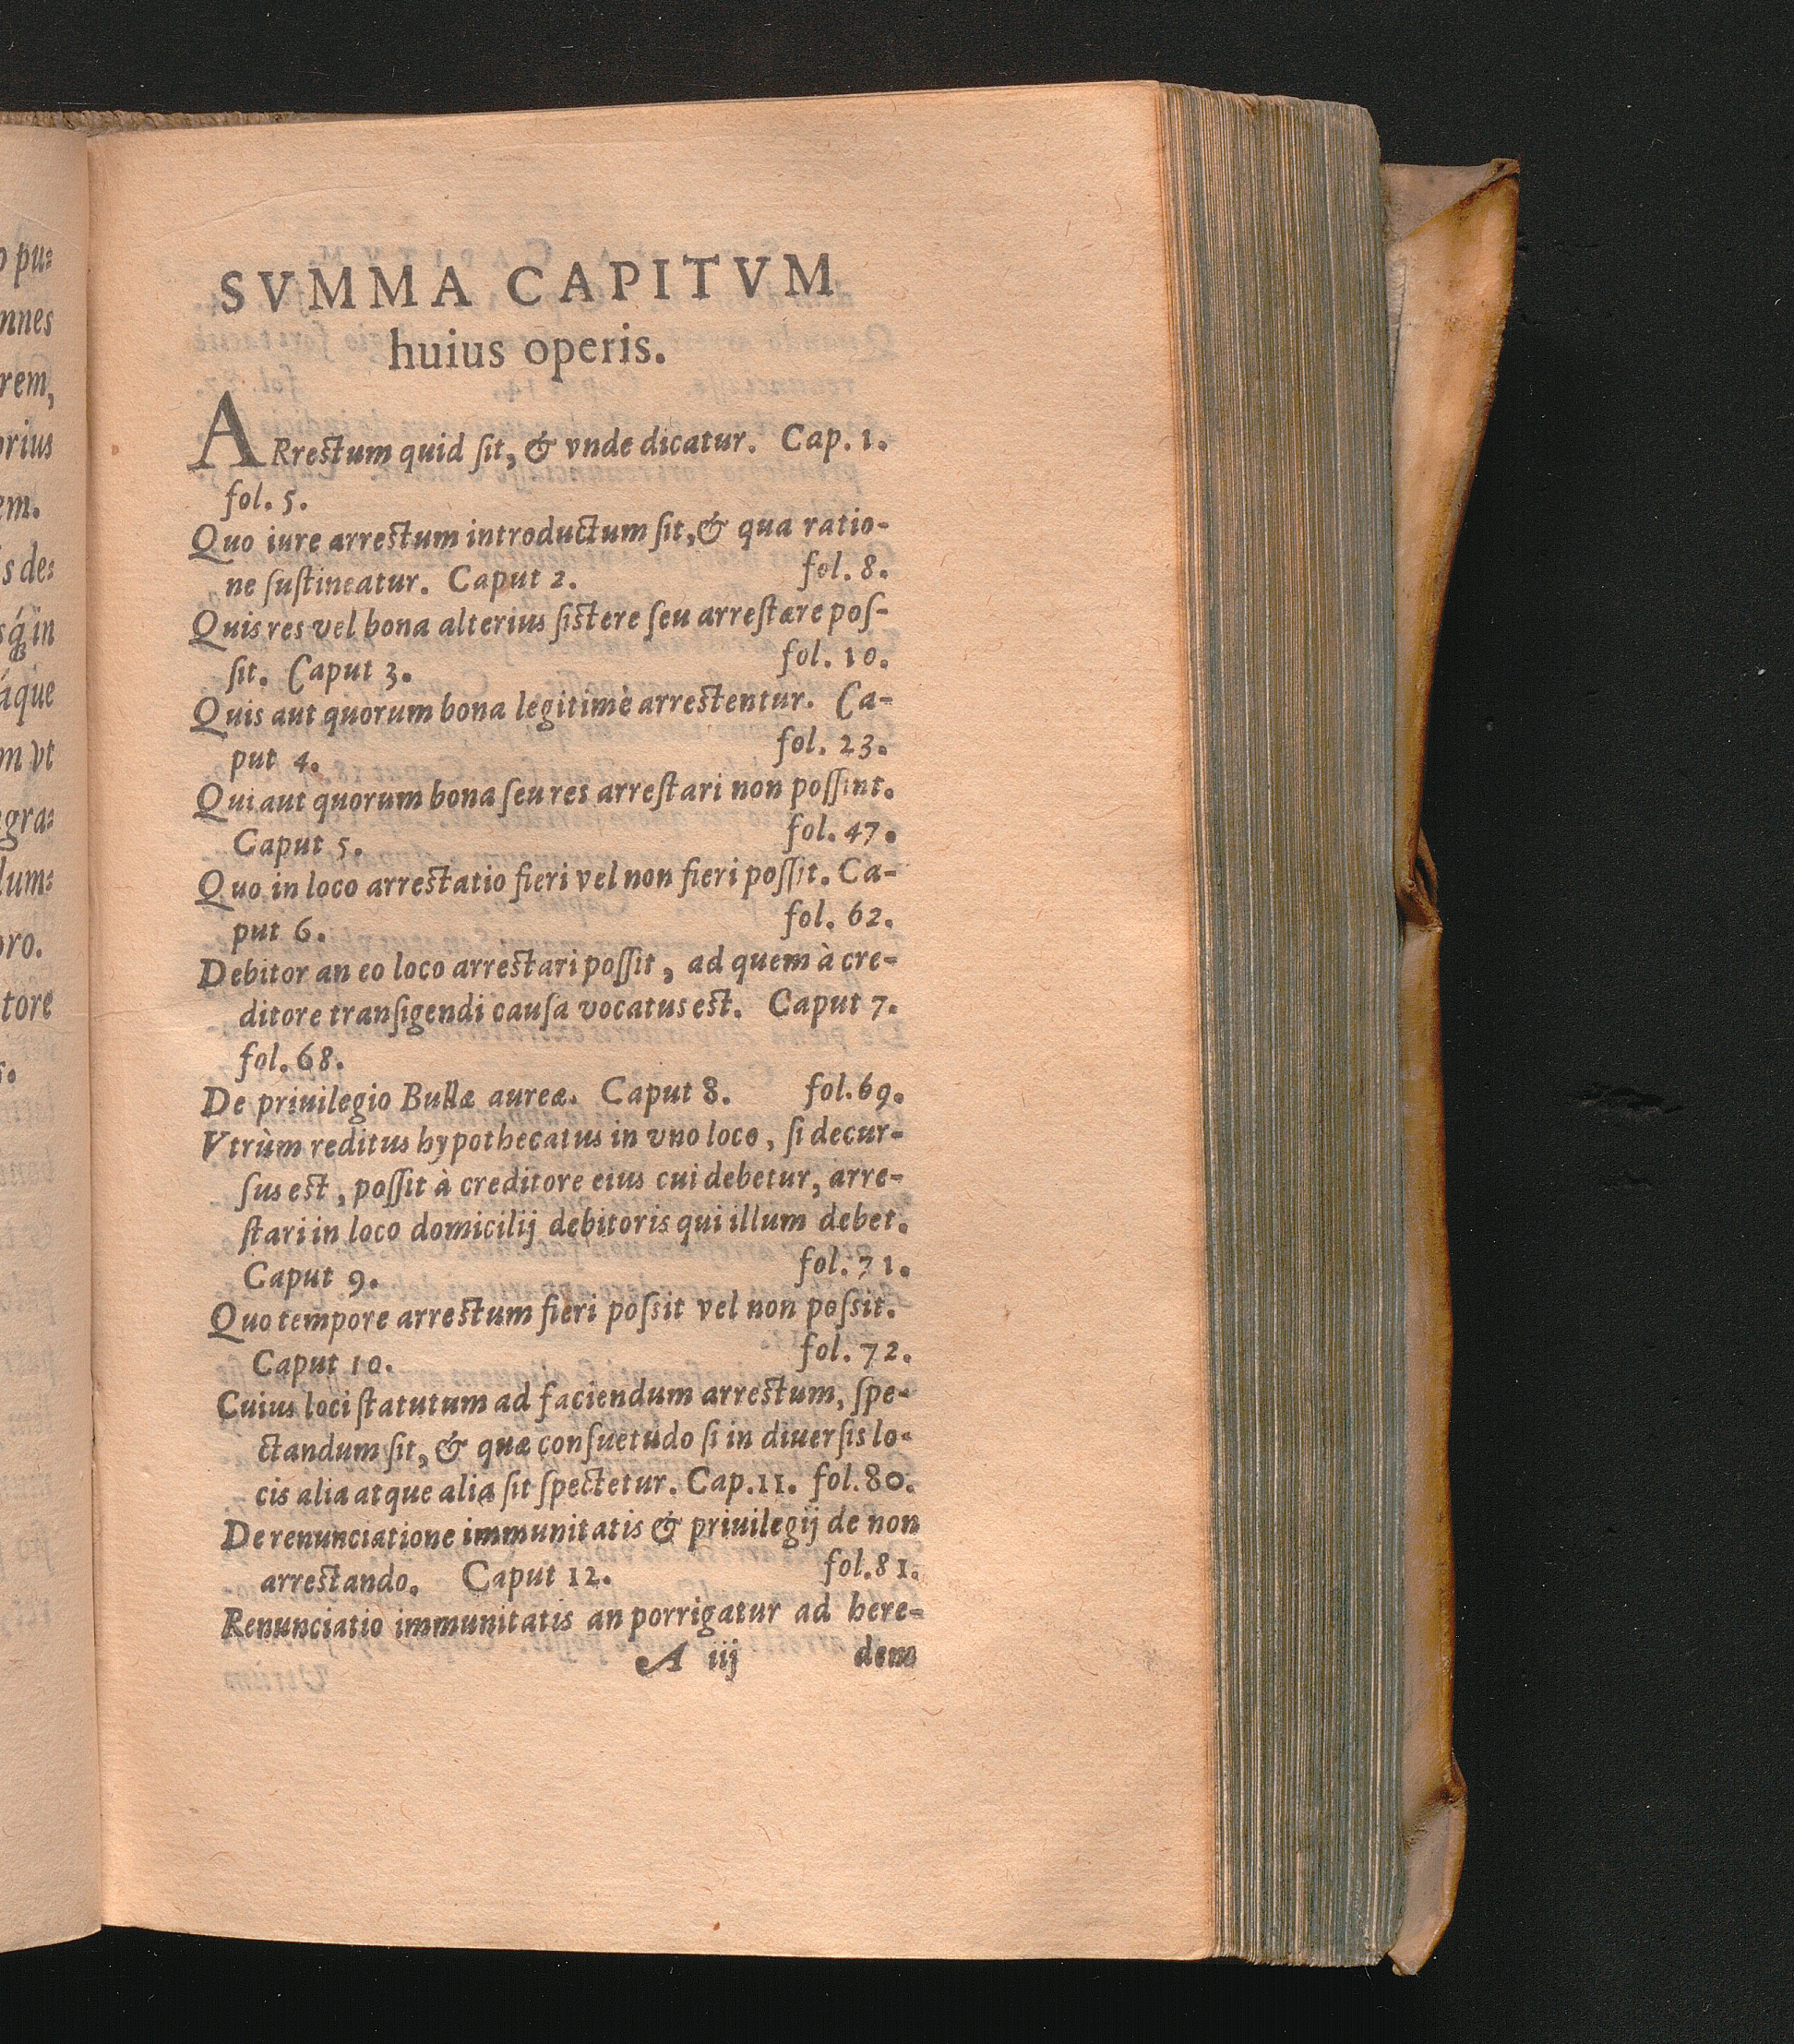 SVMMA CAPITVM
huius operis.
ARrestum quid ſit, & vnde dicatur. Cap. 1.
fol. 5.
Quo iure arrestum introductum ſit, & qua ratio-
ne ſuſtineatur. Caput 2. fol. 8.
Quis res vel bona alterius ſistere ſeu arreſtare poſ-
ſit. Caput 3. fol. 10.
Quis aut quorum bona legitimè arrestentur. Ca-
put 4. fol. 23.
Qui aut quorum bona ſeu res arreſtari non poſſint.
Caput 5. fol. 47.
Quo in loco arrestatio fieri vel non fieri poſſit. Ca-
put 6. fol. 62.
Debitor an eo loco arrestari poſſit, ad quem à cre-
ditore tranſigendi cauſa vocatus est. Caput 7.
fol. 68.
De priuilegio Bullæ aureæ. Caput 8. fol. 69.
Vtrùm reditus hypothecatus in vno loco, ſi decur-
ſus est, poſſit à creditore eius cui debetur, arre-
ſtari in loco domicilij debitoris qui illum debet.
Caput 9. fol. 71.
Quo tempore arrestum fieri poſsit vel non poſsit.
Caput 10. fol. 72.
Cuius loci ſtatutum ad faciendum arrestum, ſpe-
ctandum ſit, & quæ conſuetudo ſi in diuerſis lo-
cis alia atque alia ſit ſpectetur. Cap. 11. fol. 80.
De renunciatione immunitatis & priuilegij de non
arrestando. Caput 12. fol. 81.
Renunciatio immunitatis an porrigatur ad here-
A iij dem